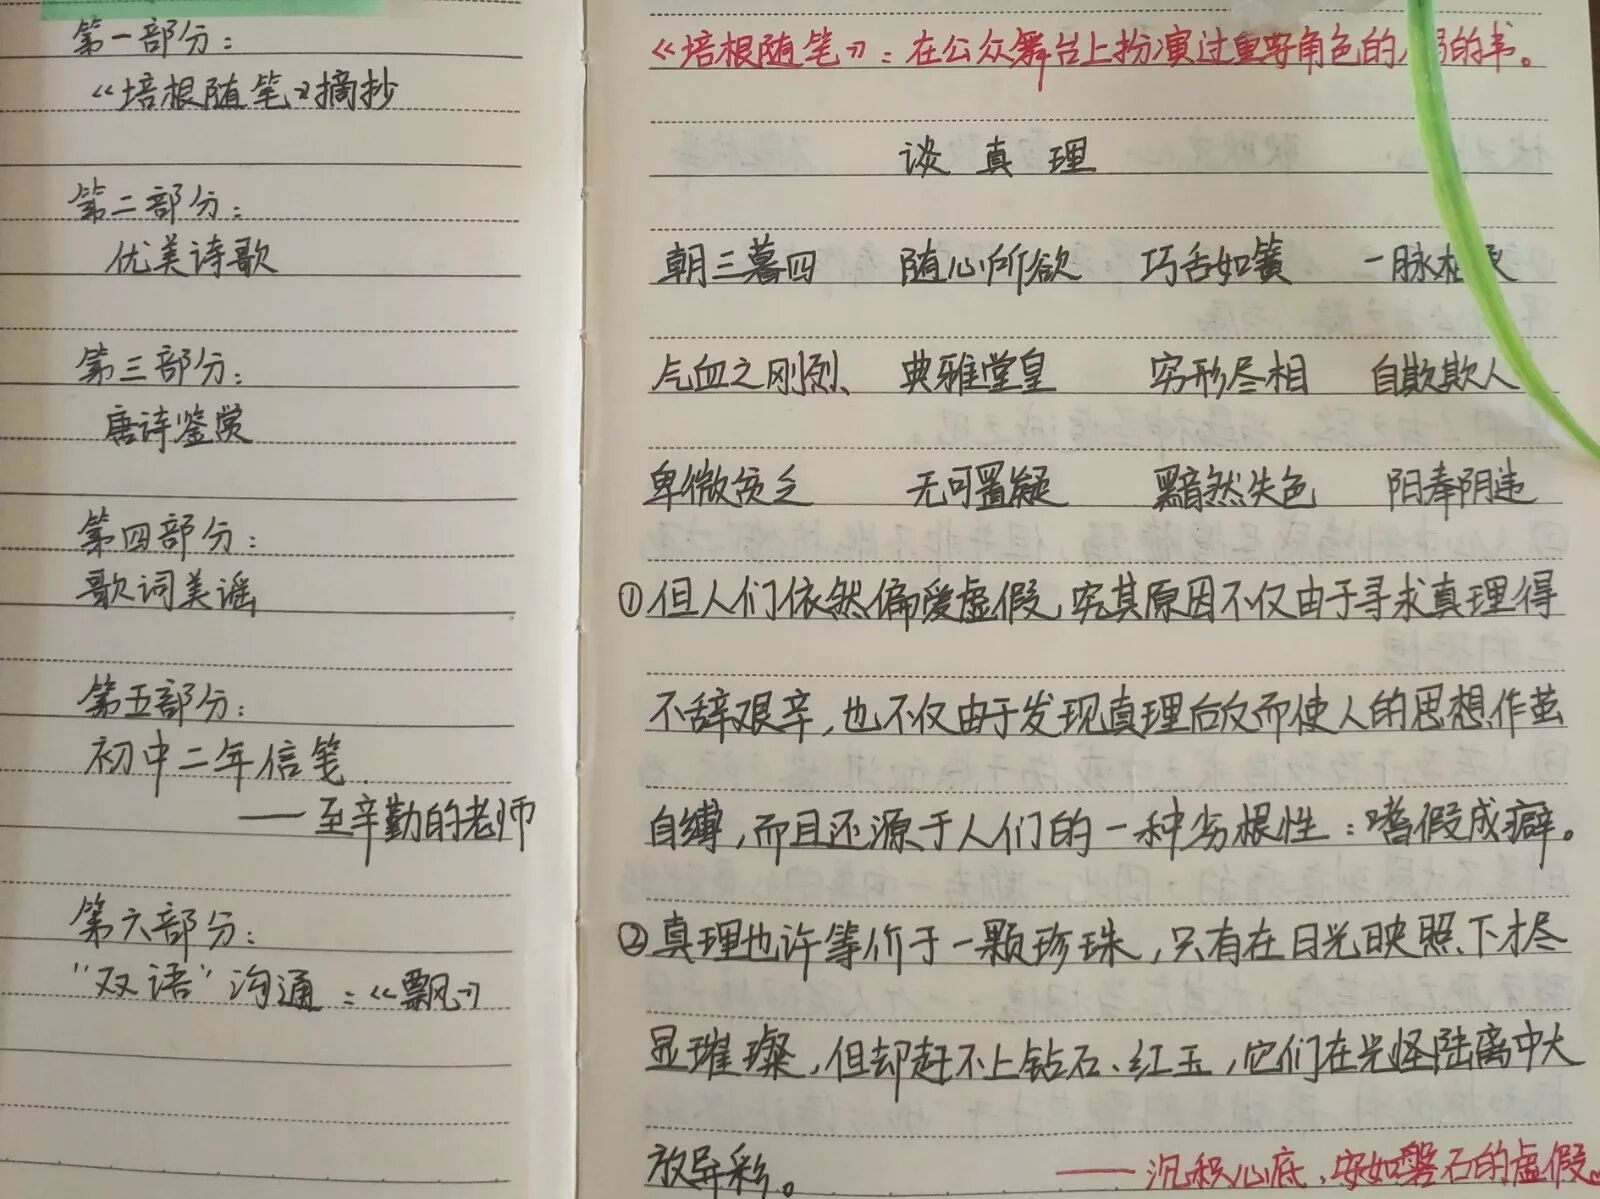 第一部分：
《培根随笔》摘抄
第二部分：
优美诗歌
第三部分：
唐诗鉴赏
第四部分：
歌词美谣
第五部分：
初中二年信笺
——至辛勤的老师
第六部分：
“双语”沟通：《飘》
《培根随笔》：在公众舞台上扮演过重要角色的人的书。
谈真理
朝三暮四 随心所欲 巧舌如簧 一脉相承
气血之刚烈、 典雅堂皇 穷形尽相 自欺欺人
卑微贫乏 无可置疑 黯然失色 阳奉阴违
①但人们依然偏爱虚假，究其原因不仅由于寻求真理得
不辞艰辛，也不仅由于发现真理后反而使人的思想作茧
自缚，而且还源于人们的一种劣根性：嗜假成癖。
②真理也许等价于一颗珍珠，只有在日光映照下才尽
显璀璨，但却赶不上钻石、红玉，它们在光怪陆离中大
放异彩。 ——沉积心底，安如磐石的虚假。